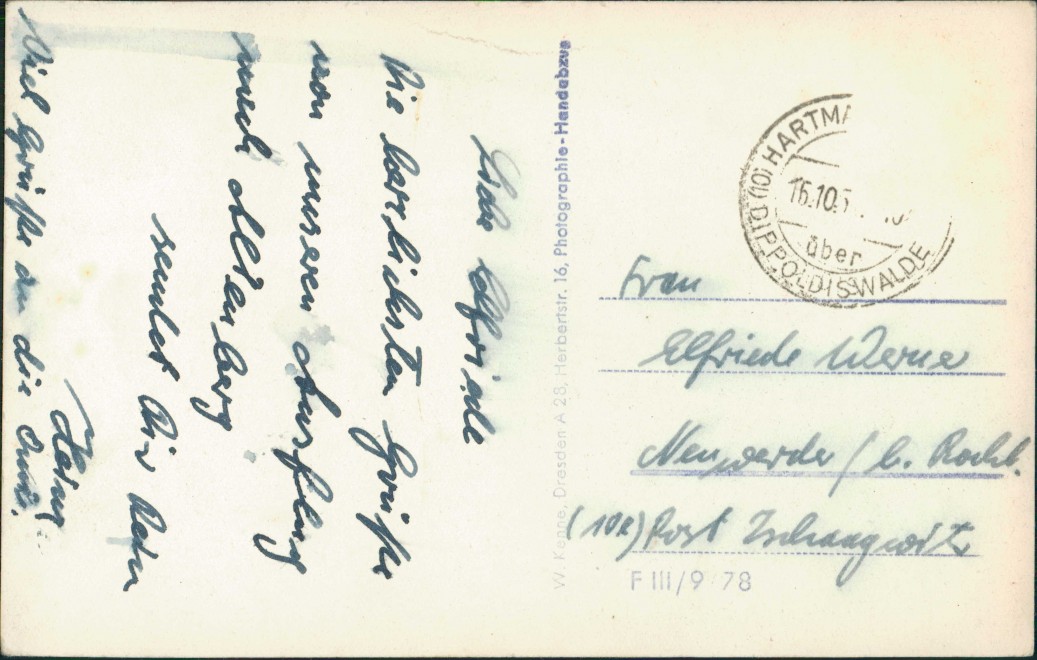 Liebe Elfriede
Die herzlichsten Grüße
von unseren Ausflug
nach Altenberg
sendet Dir Dein
Heinz
Viel Grüße an die Omi.
W. Kenne, Dresden A 28, Herbertstr. 16, Photographie-Handabzug
(10) HARTMA
16.10.5
über
DIPPOLDISWALDE
Frau
Elfriede Werne
/ b. Rochl.
(10a) Post
F III/9 78